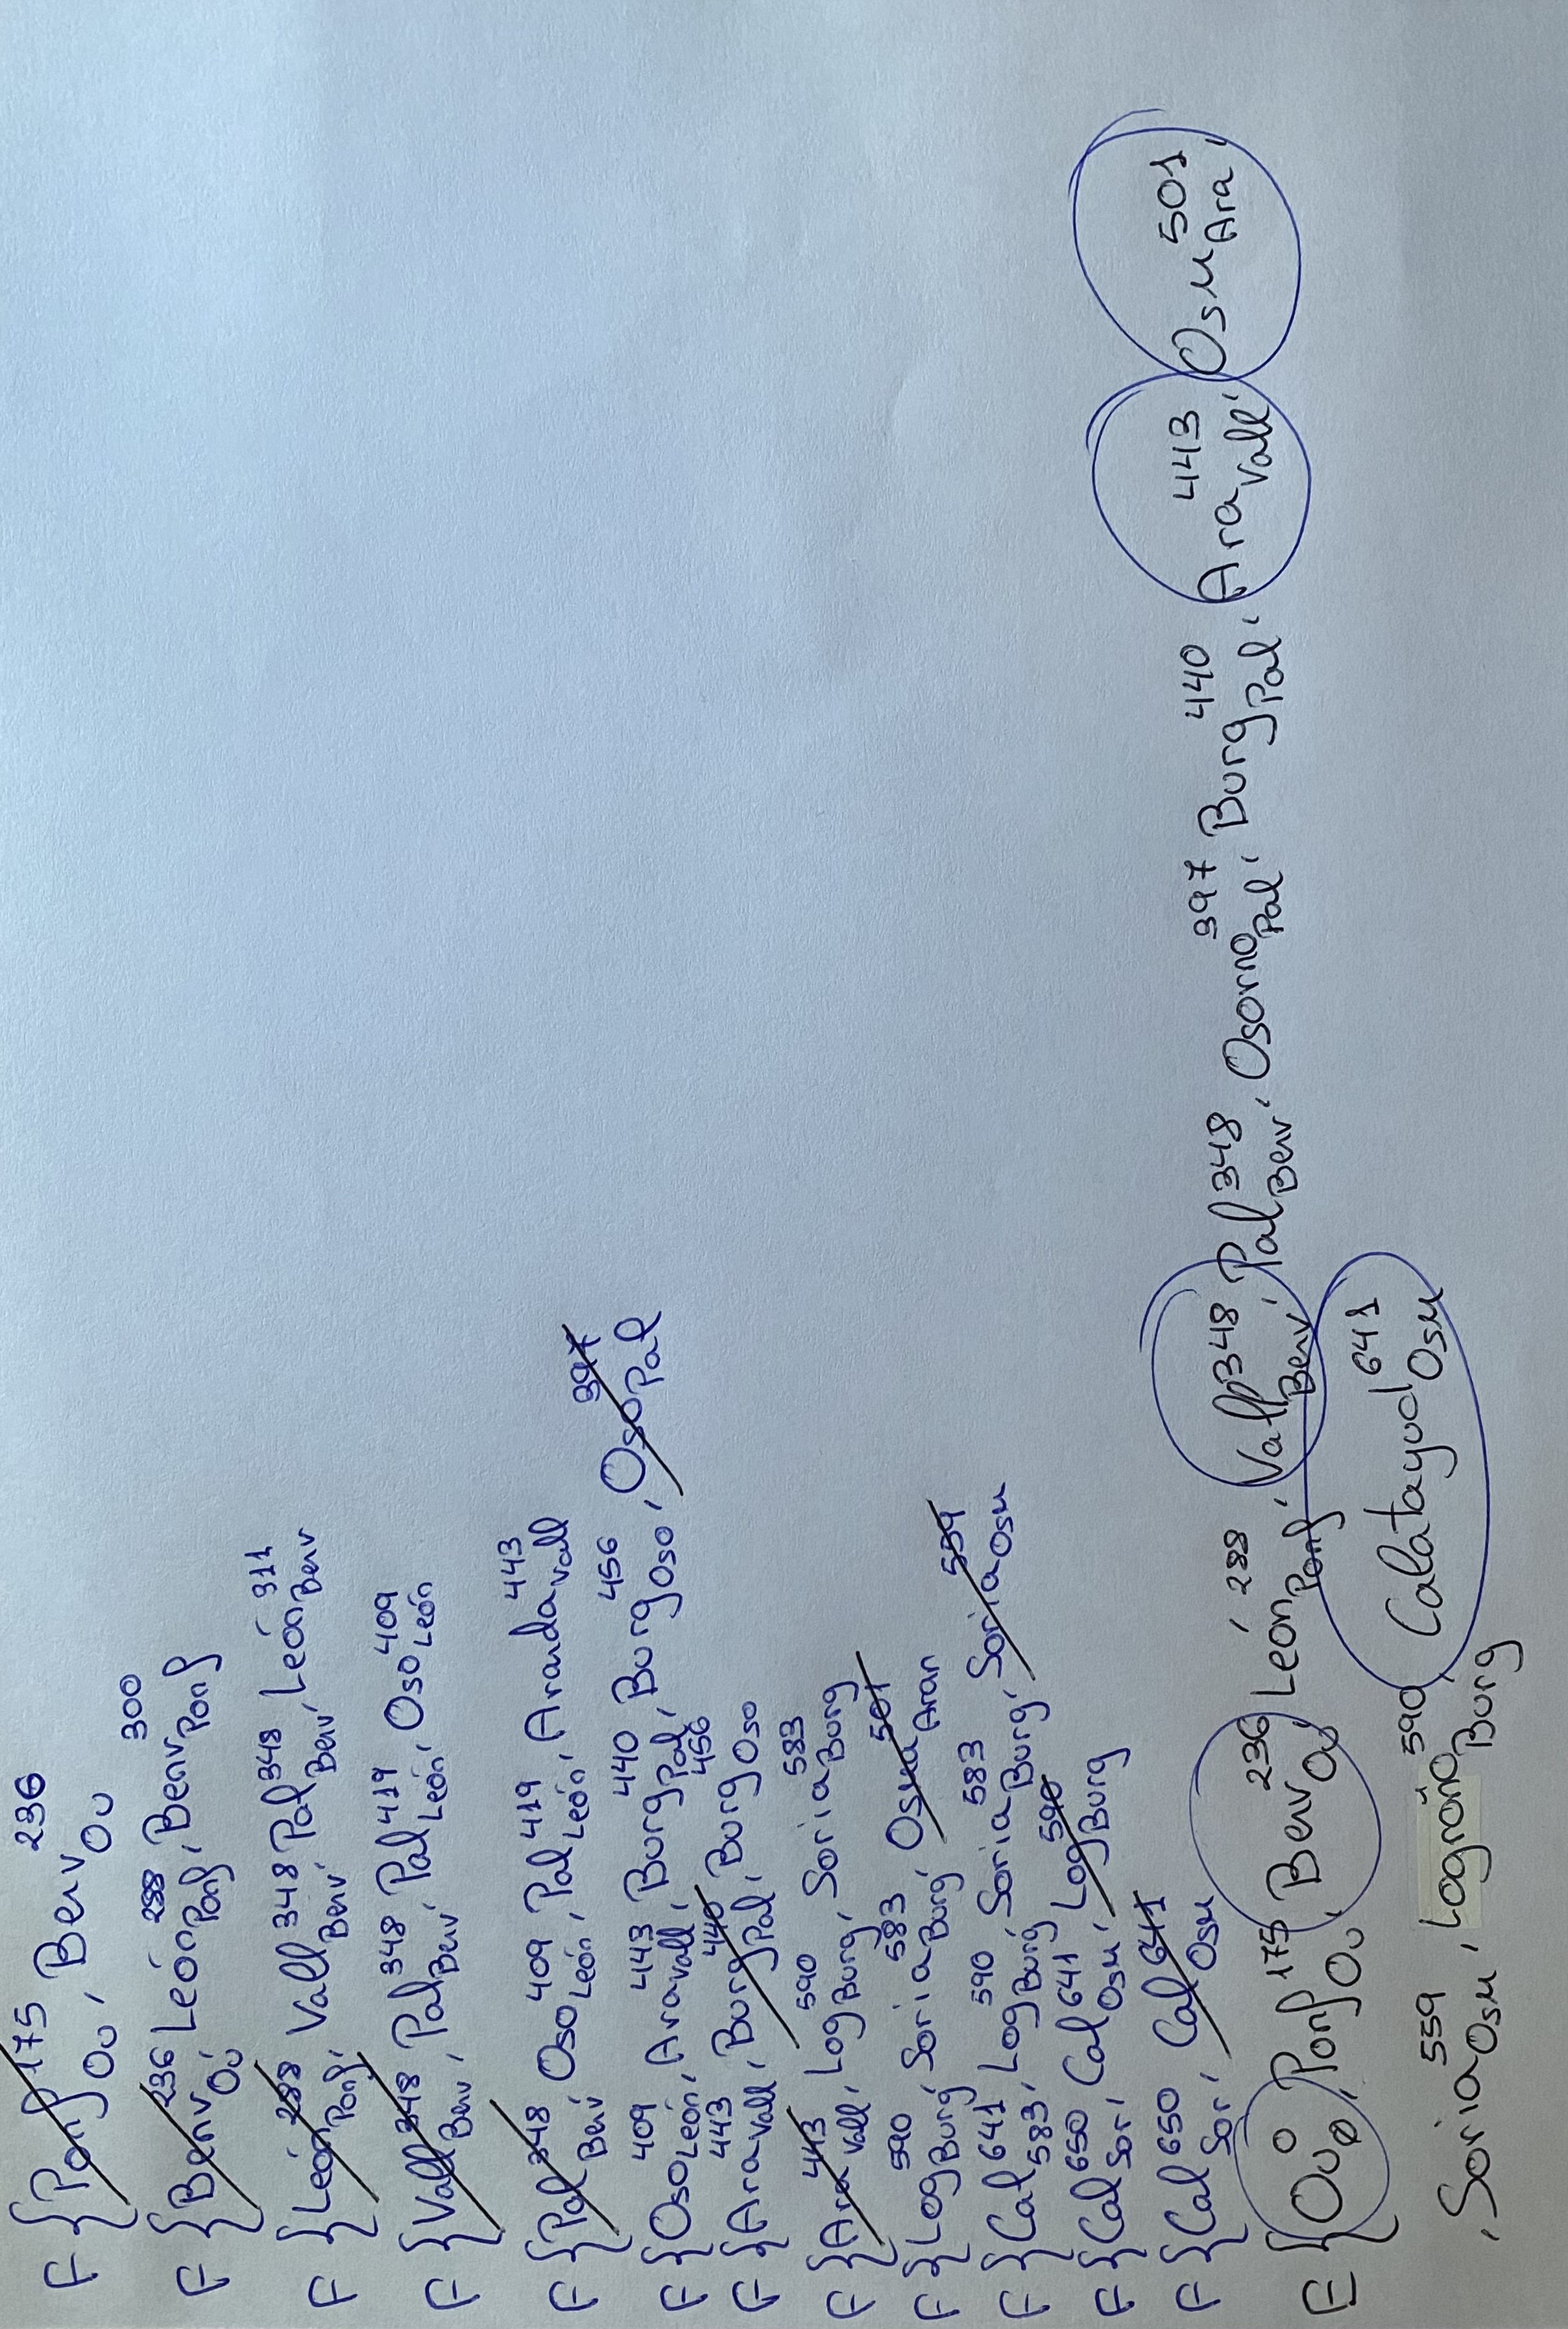 F {Ponf 175 Ou, Benv 236 Ou
F {Benv 236 Ou, León 288 Ponf, Benv 300 Ponf
F {León 288 Ponf, Vall 348 Benv, Pal 348 Benv, León 311 Benv
F {Vall 348 Benv, Pal 348 Benv, Pal 419 León, Oso 409 León
F {Pal 348 Benv, Oso 409 León, Pal 419 León, Aranda 443 Vall
F {Oso 409 León, Ara 443 Vall, Burg 440 Pal, Burg 456 Oso, Oso 397 Pal
F {Ara 443 Vall, Burg 440 Pal, Burg 456 Oso
F {Ara 443 Vall, Log 590 Burg, Soria 583 Burg
F {Log 590 Burg, Soria 583 Burg, Osma 501 Aran
F {Cal 641 583, Log 590 Burg, Soria 583 Burg, Soria 559 Osm
F {Cal 650 Sor, Cal 641 Osm, Log 590 Burg
F {Cal 650 Sor, Cal 641 Osm
E {Ou 0 ∅, Ponf 175 Ou, Benv 236 Ou, León 288 Ponf, Vall 348 Benv, Pal 348 Benv, Osorno 397 Pal, Burg 440 Pal, Ara 443 Vall, Osm 501 Ara,
, Soria 559 Osm, Logroño 590 Burg, Calatayud 641 Osm